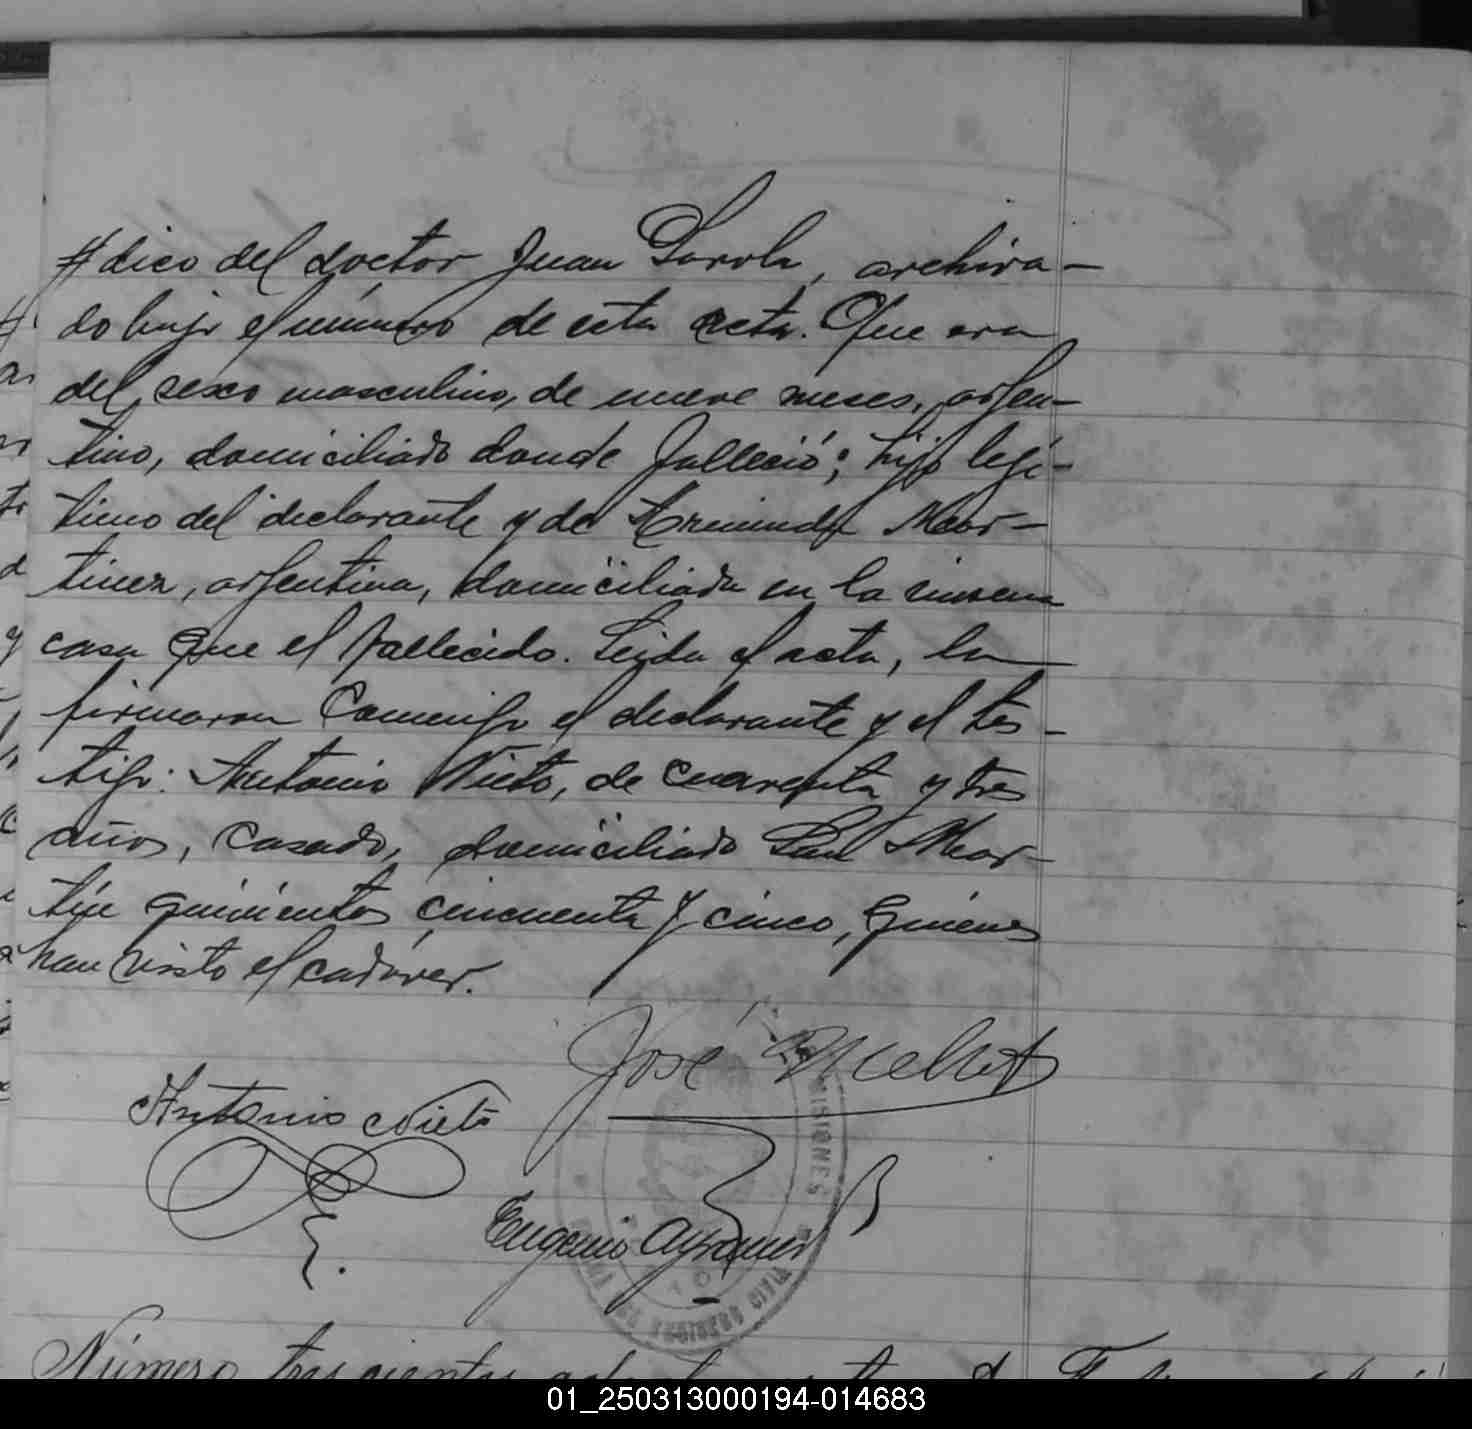 dico del doctor Juan Sarola, archiva-
do bajo el número de esta acta. Que era
del sexo masculino, de nueve meses, argen-
tino, domiciliado donde falleció; hijo legí-
timo del declarante y de Erminda Mar-
tinez, argentina, domiciliada en la misma
casa que el fallecido. Leída el acta, la
firmaron Conmigo el declarante y el tes-
tigo: Antonio Nieto, de cuarenta y tres
años, casado, domiciliado San Mar-
tín quinientos cincuenta y cinco, quienes
han visto el cadáver.
José
Antonio Nieto
MISIONES
Eugenio
Número trescientos
01_250313000194-014683